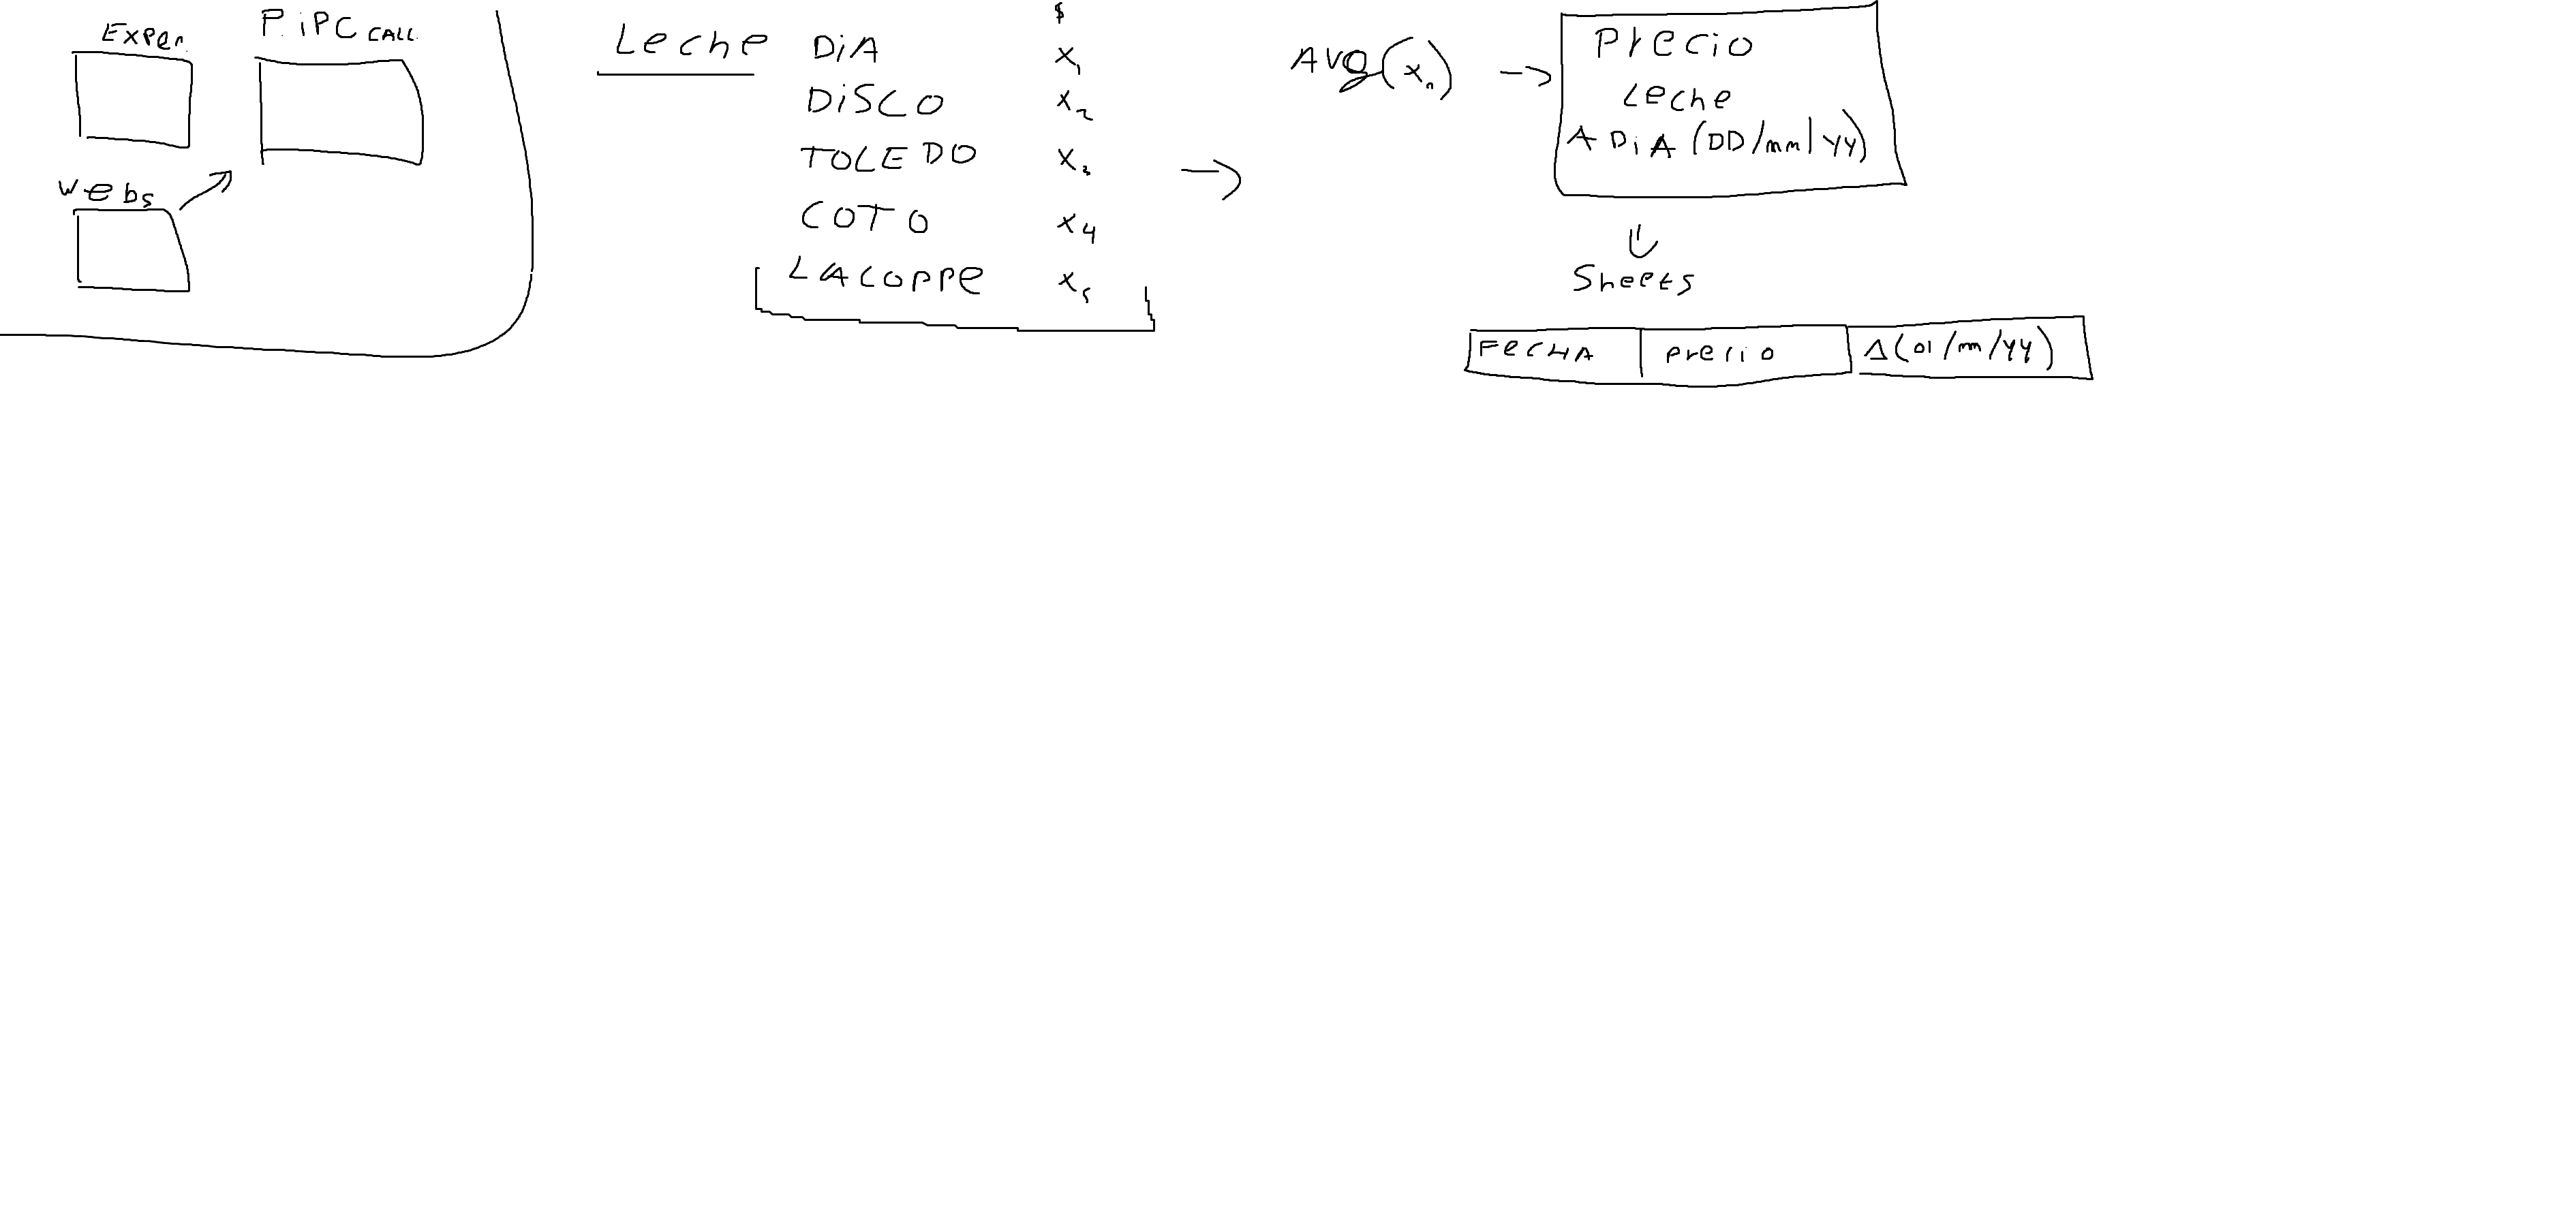 Exper.
P. iPC CALL.
Webs
Leche
$
DiA x1
DiSCO x2
TOLEDO x3
COTO x4
LACOPPE x5
->
AVg(xn) ->
Precio
Leche
A DiA (DD/mm/YY)
Sheets
FeCHA precio Δ(01/mm/YY)